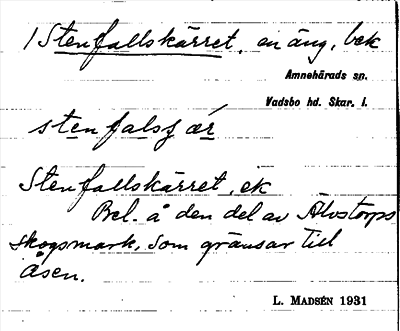 1 Stenfallskärret, en äng, bek
Amnehärads sn.
Vadsbo hd. Skar. l.
stenfalsʃær
Stenfallskärret, ek
Bel. å den del av Älvstorps
skogsmark, som gränsar till
åsen.
L. MADSÉN 1931